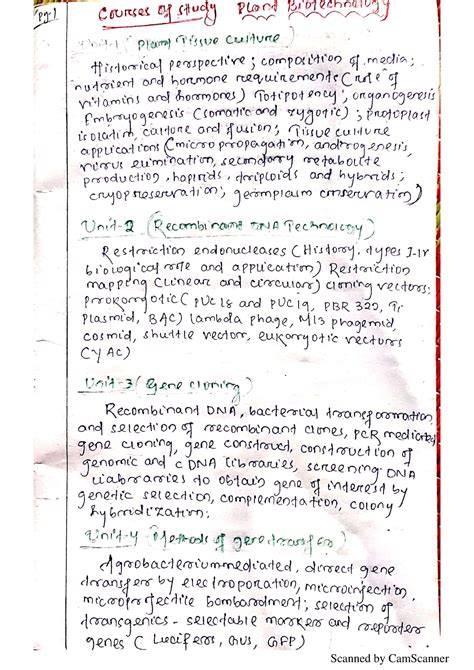 Pg-1
Courses of study Plant Biotechnology
Unit-1 (Plant Tissue Culture)
Historical perspective; composition of media;
nutrient and hormone requirements (role of
vitamins and hormones) Totipotency; organogenesis
Embryogenesis (somatic and zygotic); protoplast
isolation, culture and fusion; Tissue culture
applications (micropropagation, androgenesis,
virus elimination, secondary metabolite
production, haploids, triploids and hybrids;
cryopreservation; germplasm conservation)
Unit-2 (Recombinant DNA Technology)
Restriction endonucleases (History, types I-IV
biological role and application) Restriction
mapping (Linear and circular) cloning vectors:
prokaryotic (PUC 18 and PUC 19, PBR 322, Ti
Plasmid, BAC) lambda phage, M13 phagemid,
cosmid, shuttle vector, eukaryotic vectors
(YAC)
Unit-3 (Gene cloning)
Recombinant DNA, bacterial transformation
and selection of recombinant clones, PCR mediated
gene cloning, gene construct, construction of
genomic and cDNA libraries, screening DNA
liabraries to obtain gene of interest by
genetic selection, complementation, colony
hybridization;
Unit-4 Methods of gene transfer)
Agrobacterium mediated, direct gene
transfer by electroporation, microinjection,
microprojectile bombardment; selection of
transgenics - selectable marker and reporter
genes (Lucifers, GUS, GFP)
Scanned by CamScanner